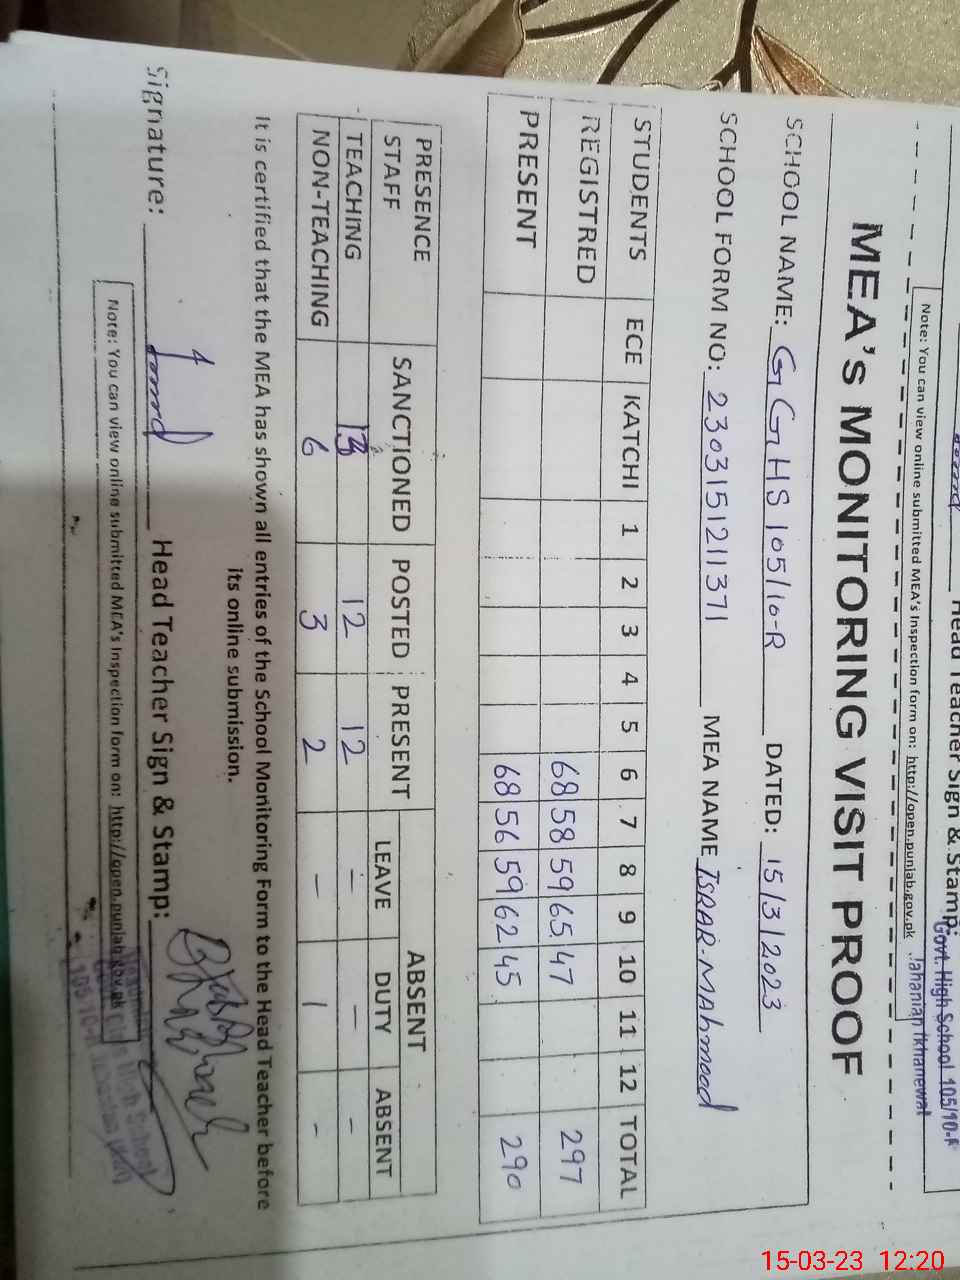 Head Teacher Sign & Stamp:
Govt. High School 105/10-R
Jahanian (Khanewal
Note: You can view online submitted MEA's Inspection form on: http://open.punjab.gov.pk
MEA's MONITORING VISIT PROOF
SCHOOL NAME: GGHS 105/10-R DATED: 15/3/2023
SCHOOL FORM NO: 230315121371 MEA NAME ISRAR-MAhmood
STUDENTS ECE KATCHI 1 2 3 4 5 6 7 8 9 10 11 12 TOTAL
REGISTRED 68 58 59 65 47 297
PRESENT 68 56 59 62 45 290
PRESENCE STAFF SANCTIONED POSTED PRESENT ABSENT
LEAVE DUTY ABSENT
TEACHING 13 12 12 — — -
NON-TEACHING 6 3 2 — 1 -
It is certified that the MEA has shown all entries of the School Monitoring Form to the Head Teacher before
its online submission.
Signature: Head Teacher Sign & Stamp:
Note: You can view online submitted MEA's Inspection form on: http://open.punjab.gov.pk
High School
105/10-R
15-03-23 12:20